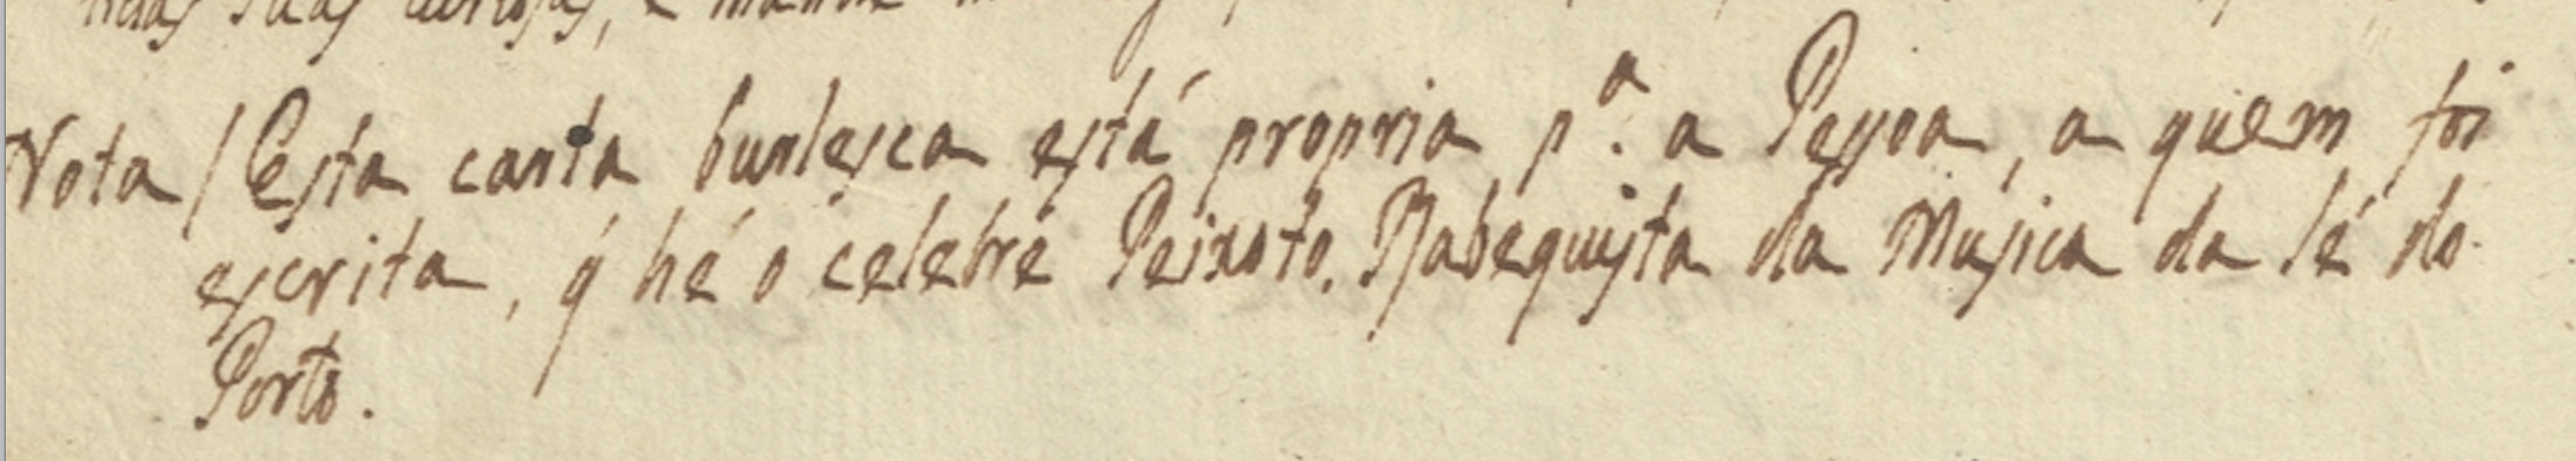 Nota / Esta carta burlesca está propria p.ª a Pessoa, a quem foi
escrita, q́ hé o celebre Peixoto, Rabequista da Musica da Sé do
Porto.